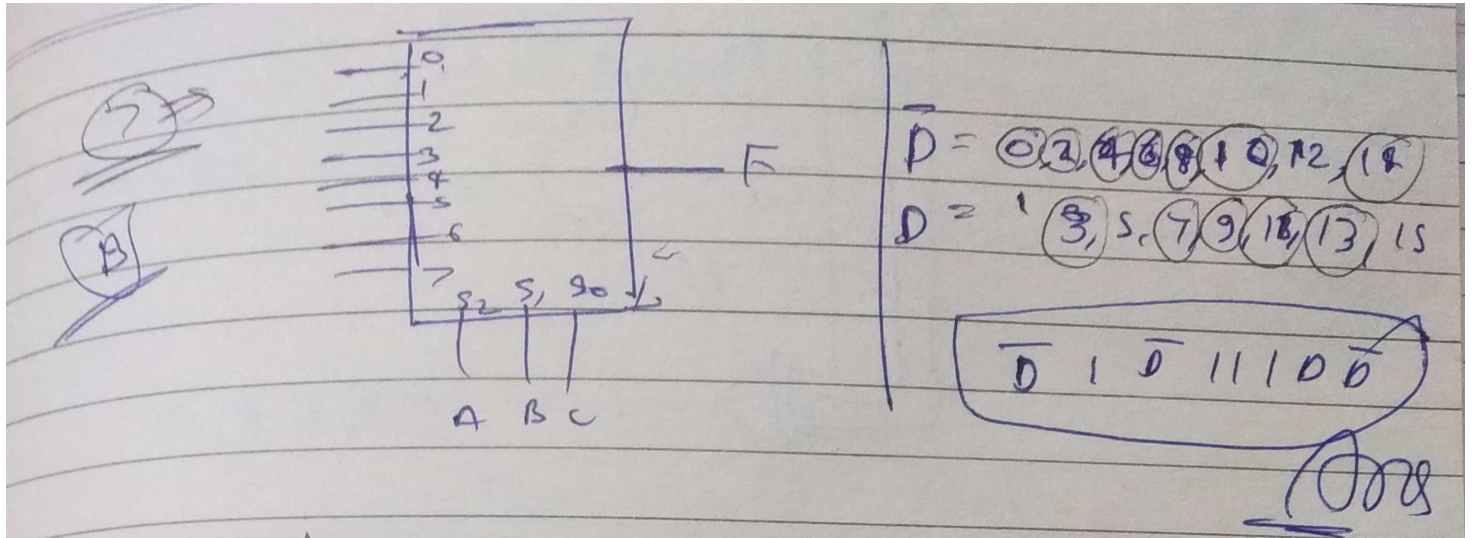 7
B
0
1
2
3
4
5
6
7
S2 S1 S0
A B C
F
D̅ = 0, 2, 4, 6, 8, 10, 12, 14
D = 1 3, 5, 7, 9, 11, 13, 15
D̅ 1 D̅ 1 1 1 D D̅
Ans